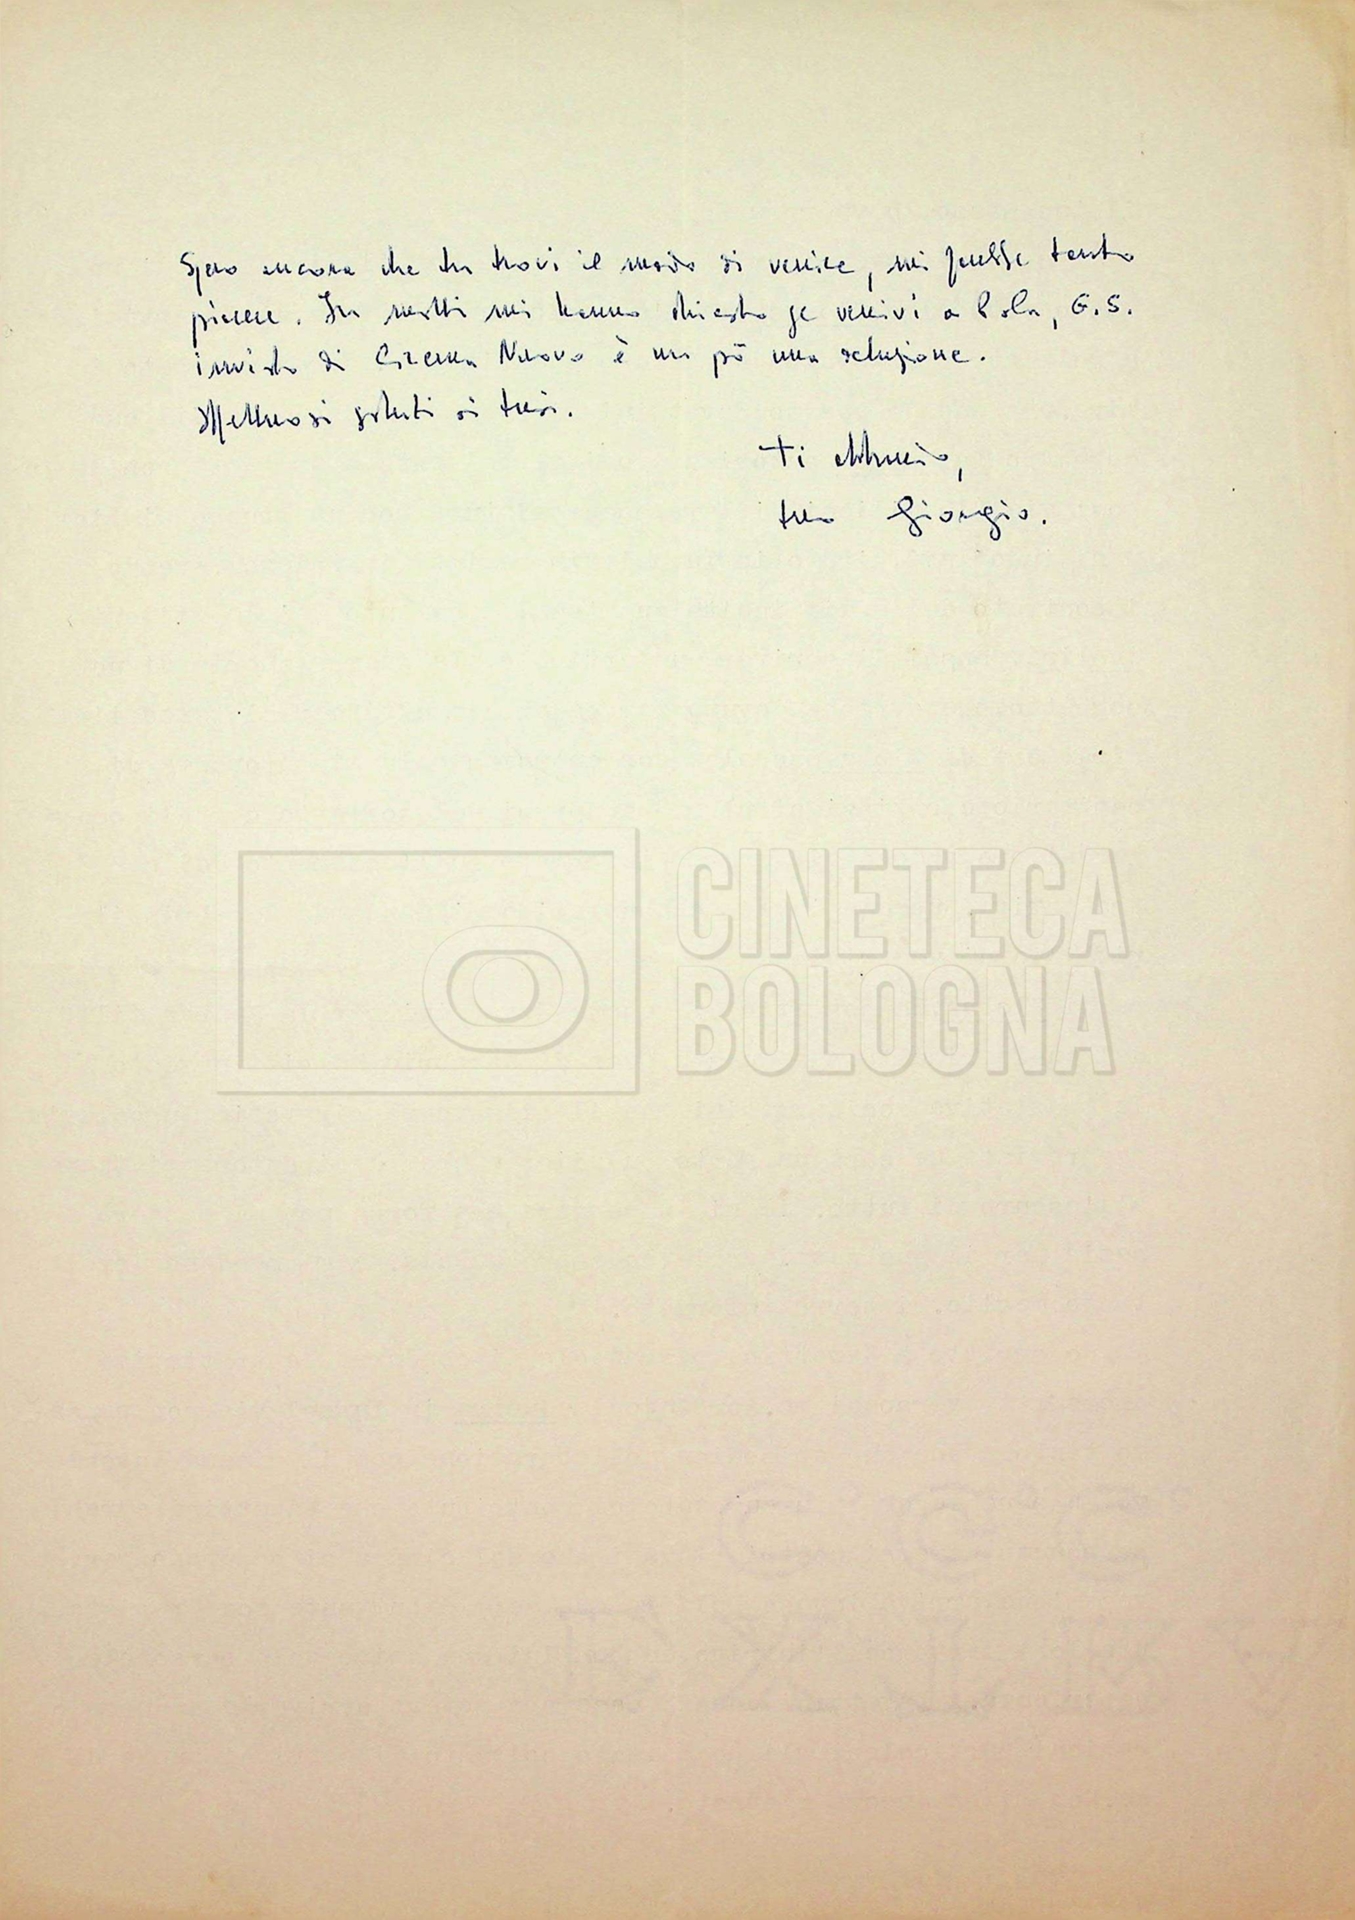 Spero ancora che tu trovi il modo di venire, mi farebbe tanto
piacere. In molti mi hanno chiesto se venivi a Pola, G.S.
inviato di Cinema Nuovo è un pò una delusione.
Affettuosi saluti ai tuoi.
Ti abbraccio,
tuo Giorgio.
CINETECA
BOLOGNA